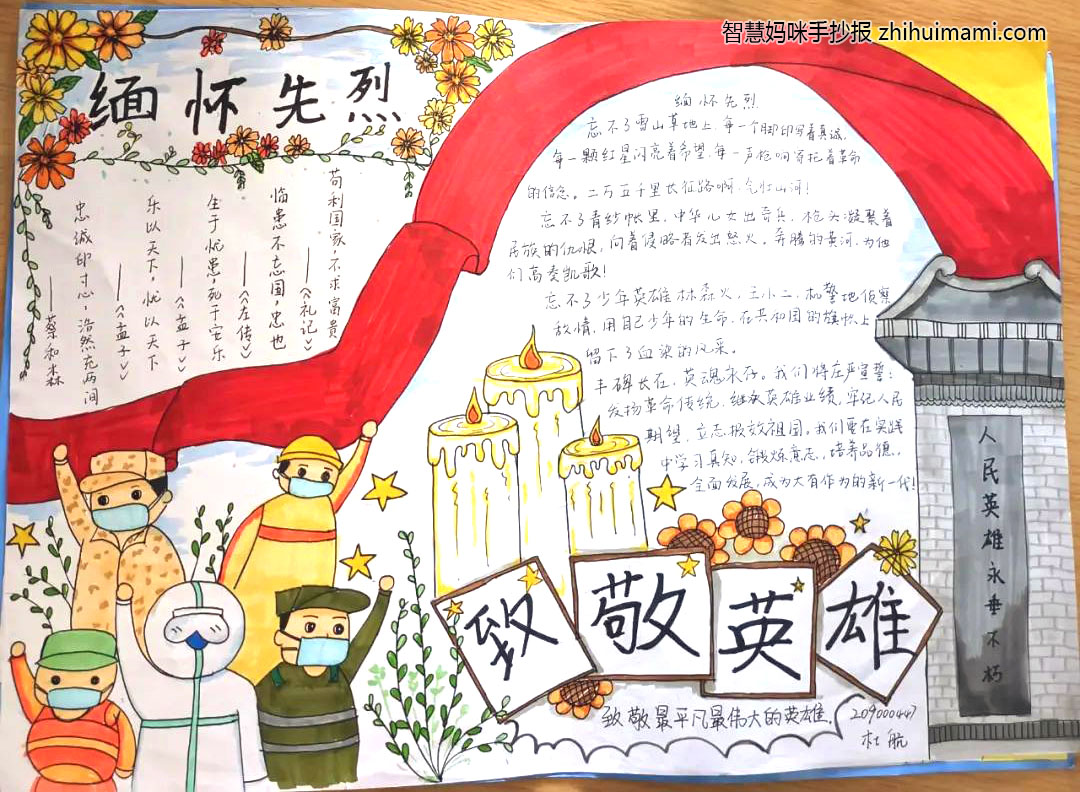 智慧妈咪手抄报 zhihuimami.com
缅怀先烈
苟利国家,不求富贵
——《礼记》
临患不忘国,忠也
——《左传》
生于忧患,死于安乐
——《孟子》
乐以天下,忧以天下
——《孟子》
忠诚印寸心,浩然充两间
——蔡和森
缅怀先烈
忘不了雪山草地上,每一个脚印写着真诚,
每一颗红星闪亮着希望,每一声枪响寄托着革命
的信念。二万五千里长征路啊,气壮山河!
忘不了青纱帐里,中华儿女出奇兵,枪头凝聚着
民族的仇恨,向着侵略者发出怒火。奔腾的黄河,为他
们高奏凯歌!
忘不了少年英雄林森火,王小二,机警地侦察
敌情,用自己少年的生命,在共和国的旗帜上
留下了血染的风采。
丰碑长在,英魂永存。我们将庄严宣誓:
发扬革命传统,继承英雄业绩,牢记人民
期望,立志报效祖国。我们要在实践
中学习真知,锻炼意志,培养品德,
全面发展,成为大有作为的新一代!
人民英雄永垂不朽
致敬英雄
致敬最平凡最伟大的英雄.
209000447
杜航